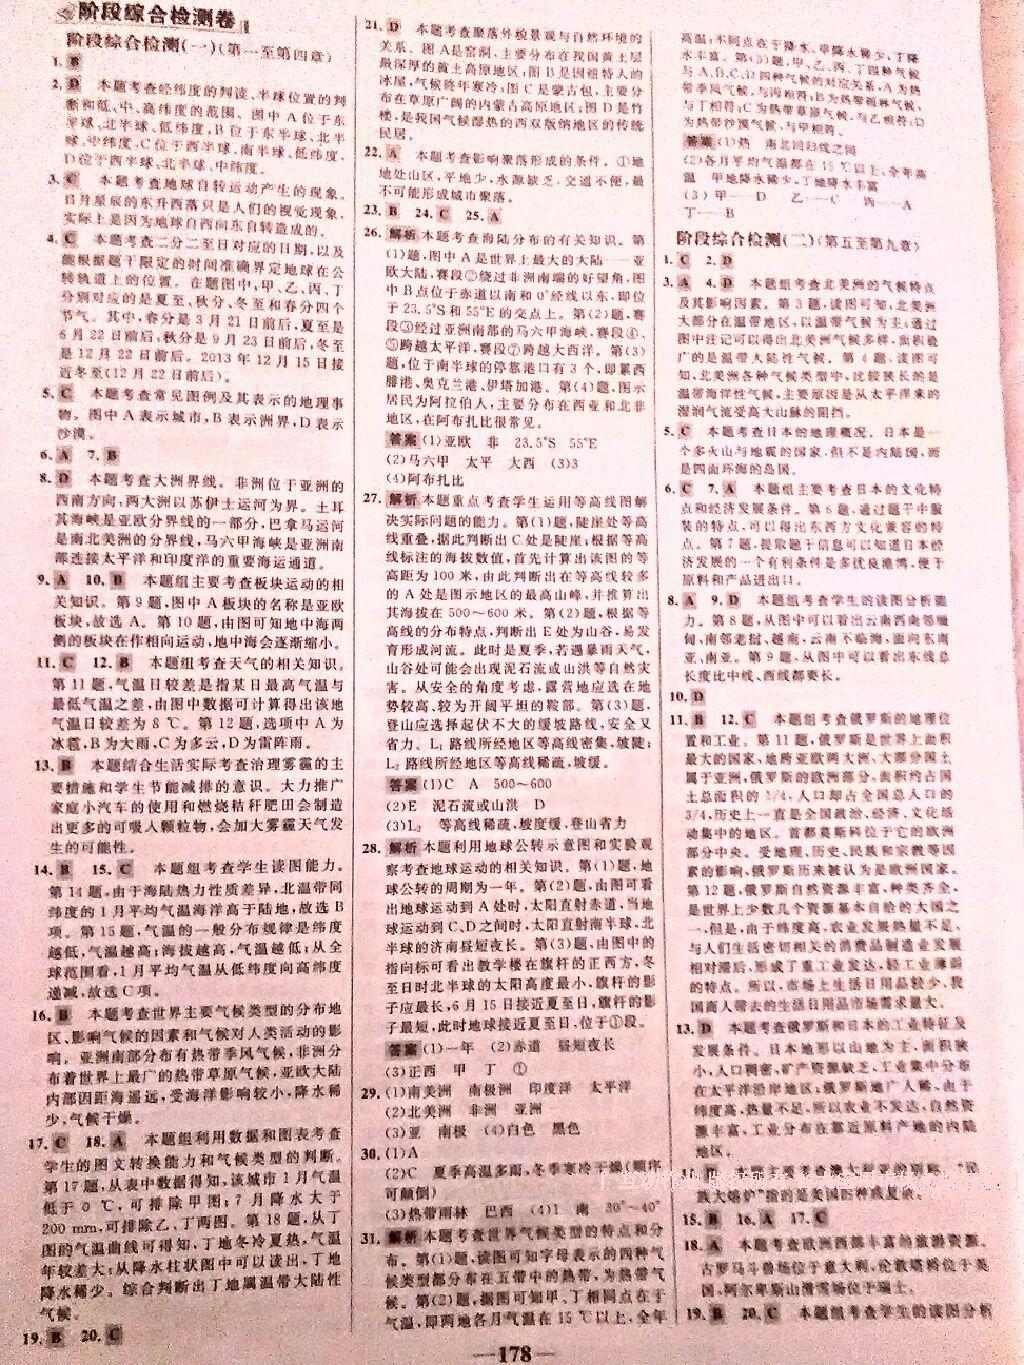 阶段综合检测卷
阶段综合检测(一)(第一至第四章)
1. B
2. D 本题考查经纬度的判读、半球位置的判
断和低、中、高纬度的范围。图中A位于东
半球、北半球、低纬度,B位于东半球、北半
球、中纬度,C位于西半球、南半球、低纬度,
D位于西半球、北半球、中纬度。
3. C 本题考查地球自转运动产生的现象。
日月星辰的东升西落只是人们的视觉现象,
实际上是因为地球自西向东自转造成的。
4. C 本题考查二分二至日对应的日期,以及
能根据题干限定的时间准确界定地球在公
转轨道上的位置。在题图中,甲、乙、丙、丁
分别对应的是夏至、秋分、冬至和春分四个
节气。其中,春分是3月21日前后,夏至是
6月22日前后,秋分是9月23日前后,冬至
是12月22日前后。2013年12月15日接
近冬至(12月22日前后)。
5. C 本题考查常见图例及其表示的地理事
物。图中A表示城市,B表示洲界,D表示
沙漠。
6. A 7. B
8. D 本题考查大洲界线。非洲位于亚洲的
西南方向;两大洲以苏伊士运河为界。土耳
其海峡是亚欧分界线的一部分,巴拿马运河
是南北美洲的分界线,马六甲海峡是亚洲南
部连接太平洋和印度洋的重要海运通道。
9. A 10. B 本题组主要考查板块运动的相
关知识。第9题,图中A板块的名称是亚欧
板块,故选A。第10题,由图可知地中海两
侧的板块在作相向运动,地中海会逐渐缩小。
11. C 12. B 本题组考查天气的相关知识。
第11题,气温日较差是指某日最高气温与
最低气温之差,由图中数据可计算得出该地
气温日较差为8℃。第12题,选项中A为
冰雹,B为大雨,C为多云,D为雷阵雨。
13. B 本题结合生活实际考查治理雾霾的主
要措施和学生节能减排的意识。大力推广
家庭小汽车的使用和燃烧秸秆肥田会制造
出更多的可吸入颗粒物,会加大雾霾天气发
生的可能性。
14. B 15. C 本题组考查学生读图能力。
第14题,由于海陆热力性质差异,北温带同
纬度的1月平均气温海洋高于陆地,故选B
项。第15题,气温的一般分布规律是纬度
越低,气温越高;海拔越高,气温越低;从全
球范围看,1月平均气温从低纬度向高纬度
递减,故选C项。
16. B 本题考查世界主要气候类型的分布地
区、影响气候的因素和气候对人类活动的影
响。亚洲南部分布有热带季风气候,非洲分
布着世界上最广的热带草原气候,亚欧大陆
内部因距海遥远,受海洋影响较小,降水稀
少,气候干燥。
17. C 18. A 本题组利用数据和图表考查
学生的图文转换能力和气候类型的判断。
第17题,从表中数据得知,该城市1月气温
低于0℃,可排除甲图;7月降水大于
200 mm,可排除乙、丁两图。第18题,从丁
图的气温曲线可得知,丁地冬冷夏热,气温
年较差大;从降水柱状图中可以读出,丁地
降水稀少。综合判断出丁地属温带大陆性
气候。
19. B 20. C
21. D 本题考查聚落外极景观与自然环境的
关系。图A是窑洞,主要分布在我国黄土层
最深厚的黄土高原地区;图B是因纽特人的
冰屋,气候终年寒冷;图C是蒙古包,主要分
布在草原广阔的内蒙古高原地区;图D是竹
楼,是我国气候湿热的西双版纳地区的传统
民居。
22. A 本题考查影响聚落形成的条件。①地
地处山区,平地少,水源缺乏,交通不便,最
不可能形成城市聚落。
23. B 24. C 25. A
26. 解析 本题考查海陆分布的有关知识。第
(1)题,图中A是世界上最大的大陆——亚
欧大陆,赛段②绕过非洲南端的好望角,图
中B点位于赤道以南和0°经线以东,即位
于23.5°S和55°E的交点上。第(2)题,赛
段③经过亚洲南部的马六甲海峡,赛段④、
⑤跨越太平洋,赛段⑦跨越大西洋。第(3)
题,位于南半球的停靠港口有3个,即累西
腓港、奥克兰港、伊塔加港。第(4)题,图示
居民为阿拉伯人,主要分布在西亚和北非
地区,在阿布扎比很常见。
答案 (1)亚欧 非 23.5°S 55°E
(2)马六甲 太平 大西 (3)3
(4)阿布扎比
27. 解析 本题重点考查学生运用等高线图解
决实际问题的能力。第(1)题,陡崖处等高
线重叠,据此判断出C处是陡崖;根据等高
线标注的海拔数值,首先计算出该图的等
高距为100米,由此判断出在等高线较多
的A处是图示地区的最高山峰,并推算出
其海拔在500～600米。第(2)题,根据等
高线的分布特点,判断出E处为山谷,易发
育形成河流。此时是夏季,若遇暴雨天气,
山谷处可能会出现泥石流或山洪等自然灾
害。从安全的角度考虑,露营地应选在地
势较高、较为开阔平坦的鞍部。第(3)题,
登山应选择起伏不大的缓坡路线,安全又
省力。L₁路线所经地区等高线密集,坡陡;
L₂路线所经地区等高线稀疏,坡缓。
答案 (1)C A 500～600
(2)E 泥石流或山洪 D
(3)L₂ 等高线稀疏,坡度缓,登山省力
28. 解析 本题利用地球公转示意图和实验观
察考查地球运动的相关知识。第(1)题,地
球公转的周期为一年。第(2)题,由图可看
出地球运动到A处时,太阳直射赤道,当地
球运动到C、D之间时,太阳直射南半球,北
半球的济南昼短夜长。第(3)题,由图中的
指向标可看出教学楼在旗杆的正西方,冬
至日时北半球的太阳高度最小,旗杆的影
子应最长,6月15日接近夏至日,旗杆的影
子最短,此时地球接近夏至日,位于①段。
答案 (1)一年 (2)赤道 昼短夜长
(3)正西 甲 丁 ①
29. (1)南美洲 南极洲 印度洋 太平洋
(2)北美洲 非洲 亚洲
(3)亚 南极 (4)白色 黑色
30. (1)A
(2)C 夏季高温多雨,冬季寒冷干燥(顺序
可颠倒)
(3)热带雨林 巴西 (4)1 南 30°～40°
31. 解析 本题考查世界气候类型的特点和分
布。第(1)题,读图可知字母表示的四种气
候类型都分布在五带中的热带,为热带气
候。第(2)题,据图可知甲、丁相同点在于
气温,即两地各月气温在15℃以上,全年
高温;不同点在于降水,甲降水稀少,丁降
水丰富。第(3)题,甲、乙、丙、丁四种气候
与A、B、C、D四种气候的对应关系,A为热
带季风气候,与丙相符;B为热带雨林气候,
与丁相符;C为热带草原气候,与乙相符;D
为热带沙漠气候,与甲相符。
答案 (1)热 南北回归线之间
(2)各月平均气温都在15℃以上,全年高
温 甲地降水稀少,丁地降水丰富
(3)甲——D 乙——C 丙——A
丁——B
阶段综合检测(二)(第五至第九章)
1. C 2. D
3. A 4. D 本题组考查北美洲的气候特点
及其影响因素。第3题,读图可知,北美洲
大部分在温带地区,以温带气候为主;通过
图中注记可以得出北美洲气候多样,面积最
广的是温带大陆性气候。第4题,读图可
知,北美洲各种气候类型中,比较狭长的是
温带海洋性气候,主要原因是从太平洋来的
湿润气流受高大山脉的阻挡。
5. C 本题考查日本的地理概况。日本是一
个多火山与地震的国家,但不是内陆国,而
是四面环海的岛国。
6. C 7. A 本题组主要考查日本的文化特
点和经济发展条件。第6题,通过题干中服
装的特点,可以得出东西方文化兼容的特
点。第7题,提取题干信息可以知道日本经
济发展的一个有利条件是多优良港湾,便于
原料和产品进出口。
8. A 9. D 本题组考查学生的读图分析能
力。第8题,从图中可以看出云南西南邻缅
甸,南邻老挝、越南,云南不临海,面向东南
亚、南亚。第9题,从图中可以看出东线总
长度比中线、西线都要长。
10. D
11. B 12. C 本题组考查俄罗斯的地理位
置和工业。第11题,俄罗斯是世界上面积
最大的国家,地跨亚欧两大洲,大部分国土
属于亚洲,俄罗斯的欧洲部分,面积约占国
土总面积的1/4,人口却占全国总人口的
3/4,历史上一直是全国政治、经济、文化活
动集中的地区。首都莫斯科位于它的欧洲
部分中央。受地理、历史、民族和宗教等因
素的影响,俄罗斯历来被认为是欧洲国家。
第12题,俄罗斯自然资源丰富,种类齐全,
是世界上少数几个资源基本自给的大国之
一。但是,由于纬度高,农业发展热量不足,
与人们生活密切相关的消费品制造业发展
相对滞后,形成了重工业发达,轻工业薄弱
的特点。所以,市场上生活日用品较少,我
国商人带去的生活日用品市场需求量大。
13. D 本题考查俄罗斯和日本的工业特征及
发展条件。日本地形以山地为主,面积狭
小,人口稠密,矿产资源缺乏,工业集中分布
在太平洋沿岸地区;俄罗斯地广人稀,由于
纬度高,热量不足,所以农业不发达,自然资
源丰富,工业分布在靠近原料产地的内陆
地区。
14. D 本题主要考查澳大利亚的别称。“民
族大熔炉”指的是美国
15. B 16. A 17. C
18. A 本题考查欧洲西部丰富的旅游资源。
古罗马斗兽场位于意大利,伦敦塔桥位于英
国,阿尔卑斯山滑雪场位于瑞士。
19. B 20. C 本题组考查学生的读图分析
—178—